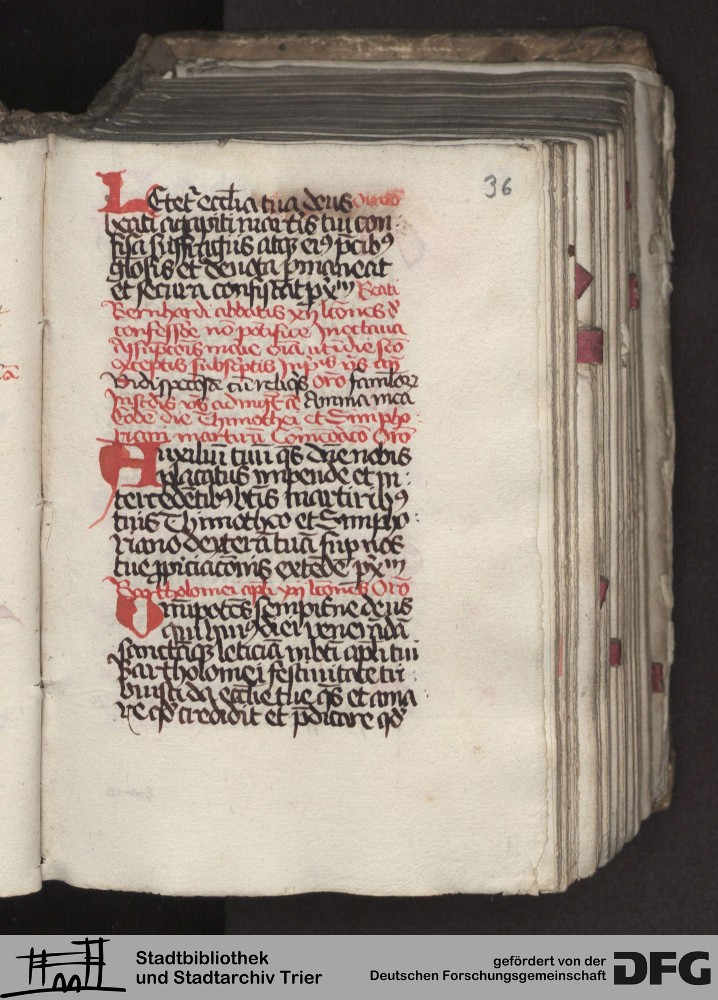 36
Letet᷑ eccl̄ia tua deus Oratio
beati agapiti mart̄is tui con
fisa suffragijs atq̣ꝫ ei⁹ p̄cib⁹
gl̄osis et deuota p̄maneat
et secura consistat p̱ xp̄m Beati
Bernhardi abbatis xij lc̄ones
confessoē nō pōtifice In octaua
Assūptōnis marie
exceptis
cū reliqs Or̄o famulorꝫ
Anima mea
eodē die Thimothei et Simpho
riani martirū Com̄oratō Or̄o
Auxiliū tuū q̄s dn̄e nobis
placatus impende et in
tercedētib⁹ btīs martirib⁹
tuis Thimotheo et Simpho
riano dexterā tuā sup nos
tue ꝓpiciacōnis extēde p̱ xp̄m
Bartholomei apl̄i xij lc̄ones Or̄o
Omīpotēs sempit̄ne deus
qui hui⁹ diei venerādā
sanctāqꝫ leticiā in bt̄i apl̄i tui
Bartholomei festiuitate tri
buisti da eccl̄ie tue q̄s et ama
re qd̄ credidit et p̄dicare qd̄
Stadtbibliothek
und Stadtarchiv Trier
gefördert von der
Deutschen Forschungsgemeinschaft
DFG